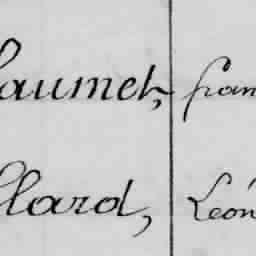 aumet, fran
llard, Léon